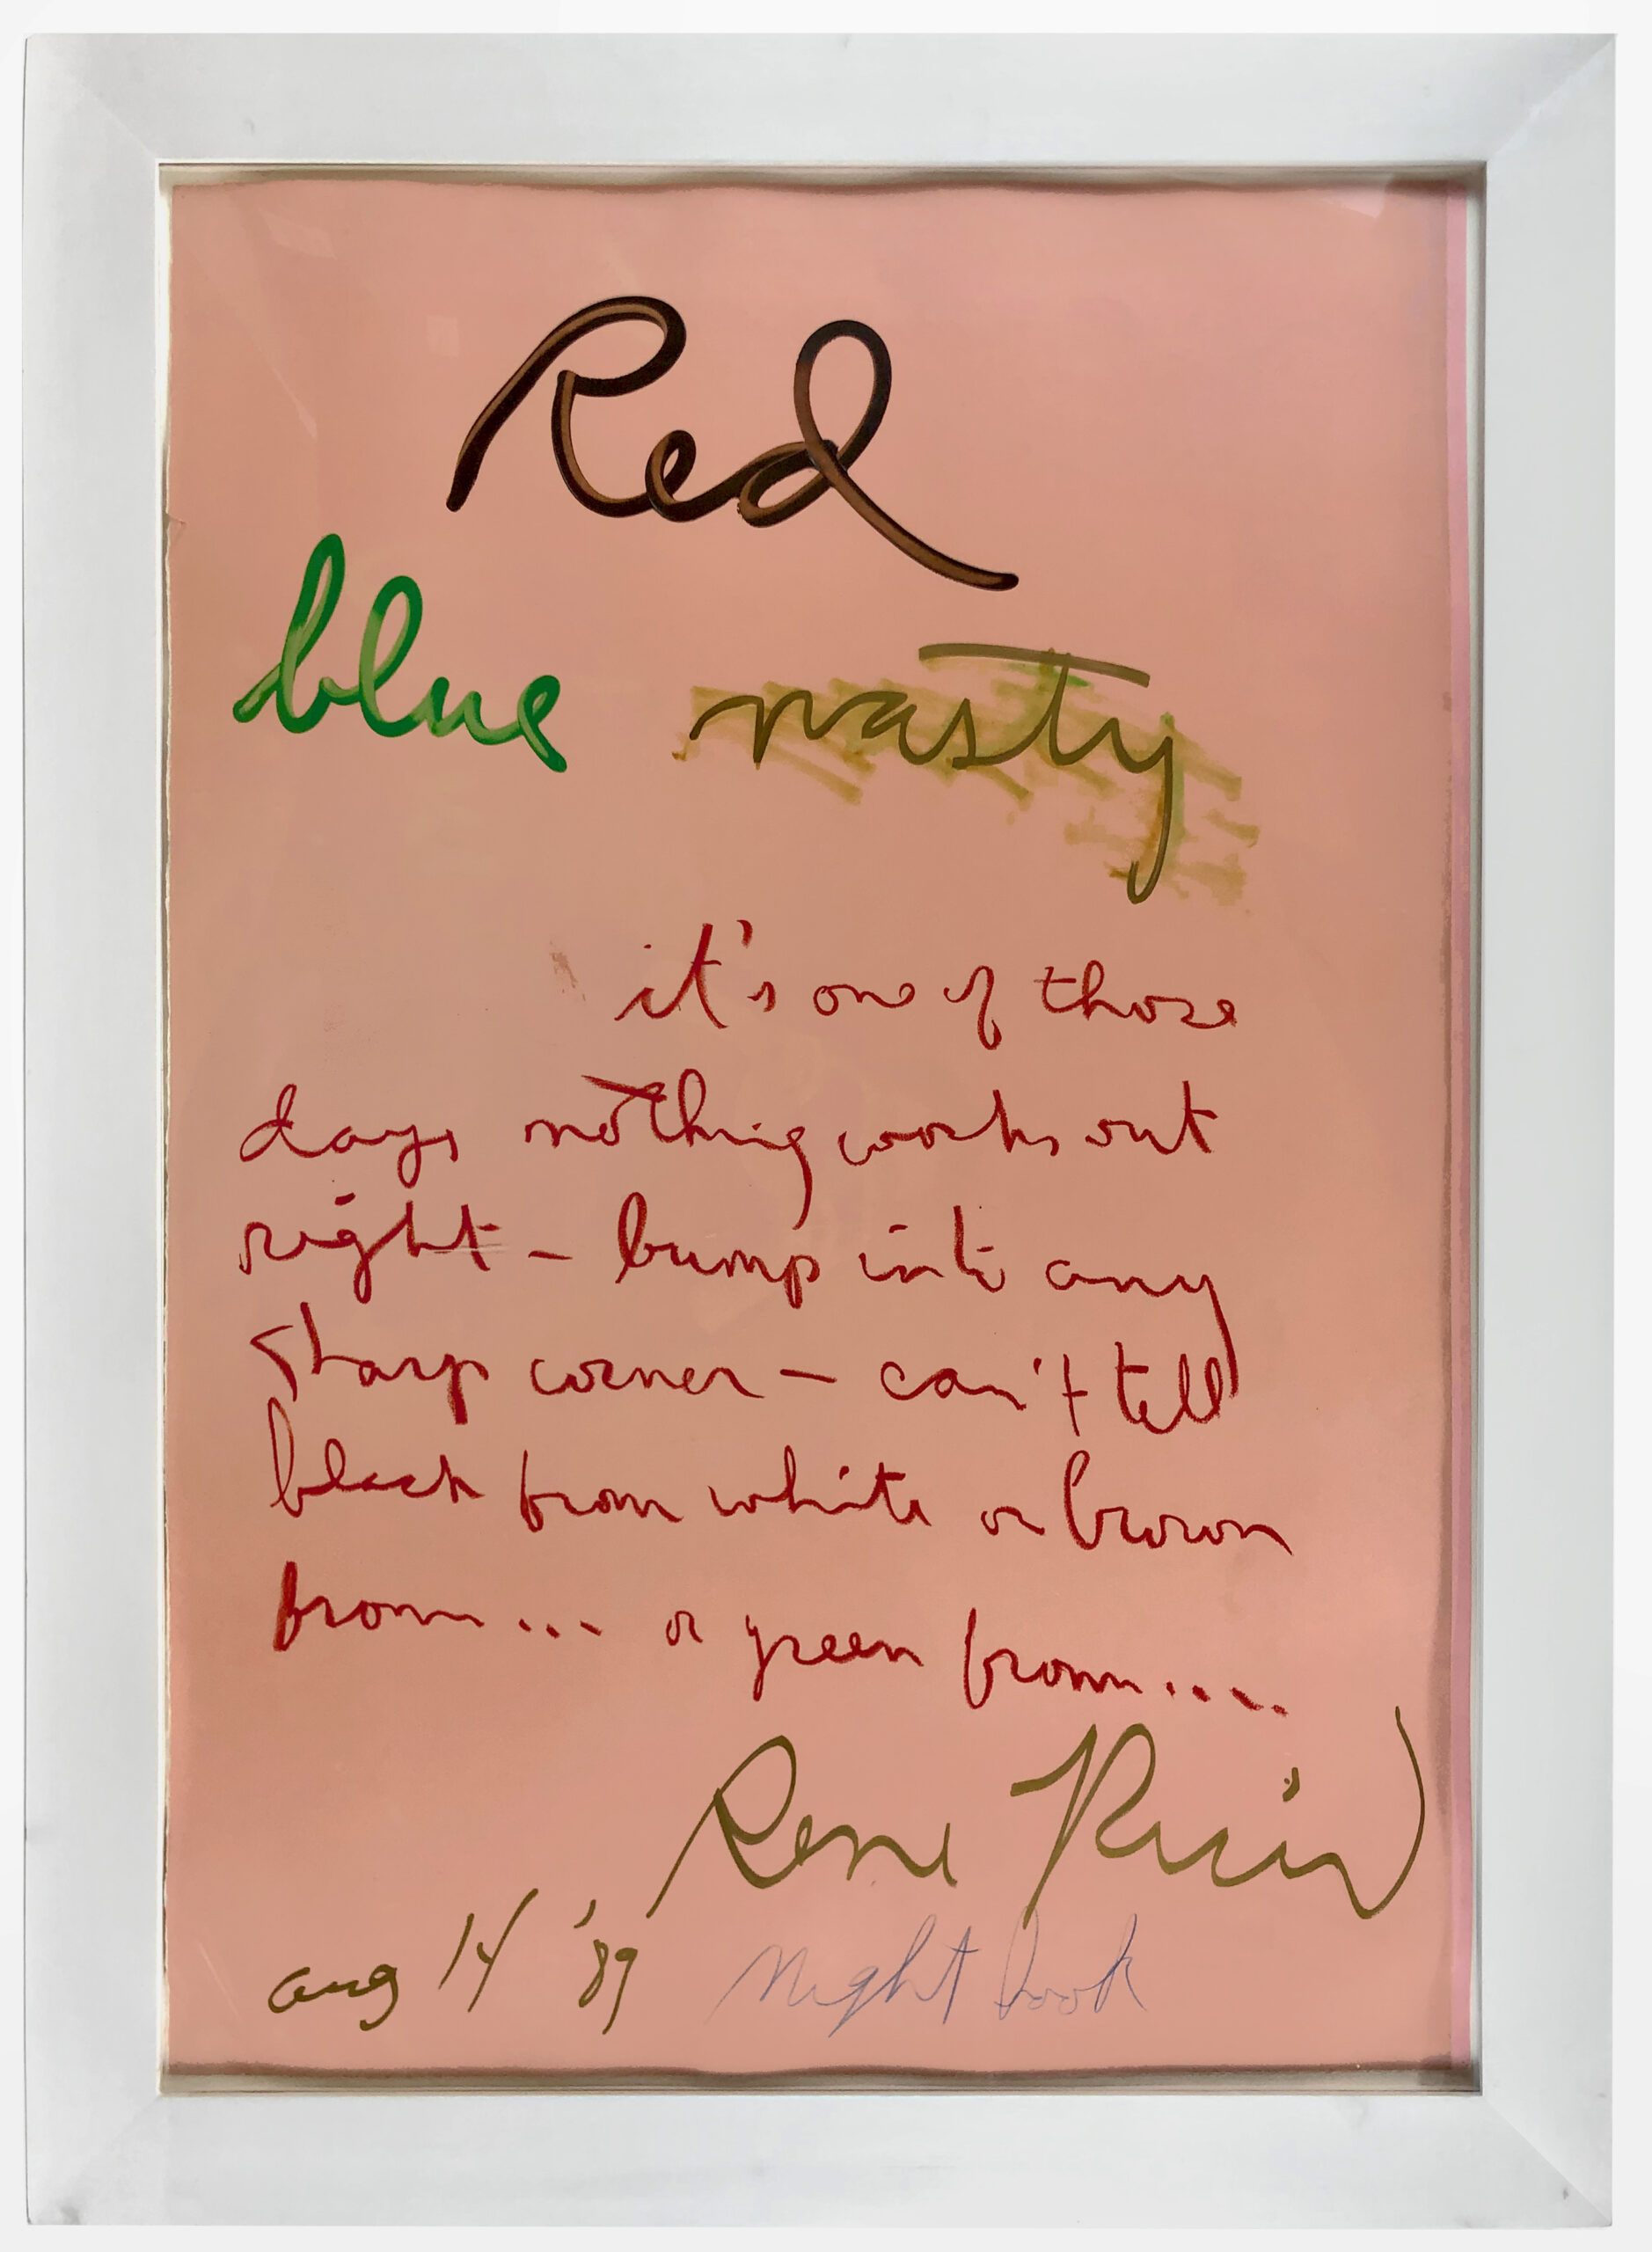 Red
blue nasty
it's one of those
days nothing works out
right – bump into any
sharp corner – can't tell
black from white or brown
from... or green from....
Rene Ricard
aug 14 '89 Night book